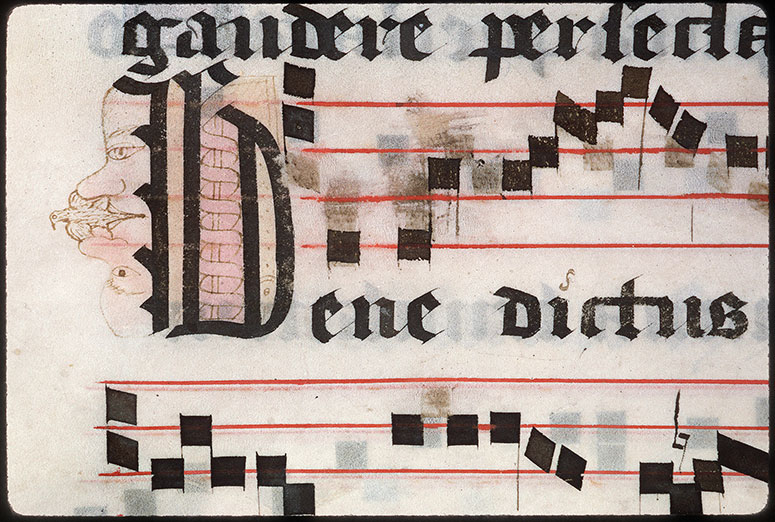 gaudere perfecta
Bene dictus